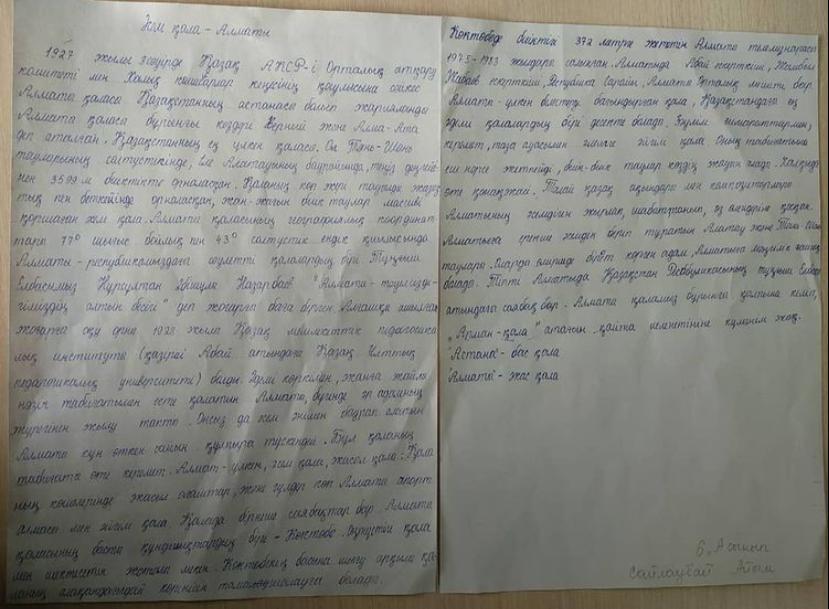 Әсем қала - Алматы
1927 жылы 3 сәуірде Қазақ АКСР-і Орталық атқару
комитеті мен Халық комиссарлар кеңесінің қаулысына сәйкес
Алматы қаласы Қазақстанның астанасы болып жарияланды
Алматы қаласы бұрынғы кездері Верный және Алма-Ата
деп аталған. Қазақстанның ең үлкен қаласы. Ол Тянь-Шань
тауларының солтүстікінде, Іле Алатауының баурайында, теңіз деңгейі-
нен 3599 м биіктікте орналасқан. Қаланың көп жері таулы жазық
тық пен беткейінде орналасқан, жан-жағын биік таулар массиві
қоршаған әсем қала. Алматы қаласының географиялық координат
тары 77° шығыс бойлық пен 43° солтүстік ендік қиылысында
Алматы - республикамыздағы сәулетті қалалардың бірі Тұңғыш
Елбасымыз Нұрсұлтан Әбішұлы Назарбаев "Алматы - тәуелсізді-
гіміздің алтын бесігі" деп жоғары баға берген. Алғашқы ашылған
жоғарғы оқу орны 1928 жылы Қазақ мемлекеттік педагогика
лық институты (қазіргі Абай атындағы Қазақ Ұлттық
педагогикалық университеті) болды. Әдемі көркімен, жанға жайлы
табиғатымен есте қалатын Алматы, бүгінде әр адамның
жүрегінен жылу тапты. Онсыз да көз
Алматы күн өткен сайын құлпыра түскендей. Бұл қаланың
табиғаты өте керемет. Алматы - үлкен, әсем қала, жасыл қала. Қала
ның көшелерінде жасыл ағаштар, және гүлдер көп Алматы апорт
алмасы мен әйгілі қала. Қалада бірнеше саябақтар бар. Алматы
қаласының басты құндылықтардың бірі - Көктөбе. қала
мен шектесетін жоталы мекен. Көктөбенің басына шығу арқылы қа-
ланың алақандағыдай көрінісін тамашалауға болады.
Көктөбеде биіктігі 372 метрге жететін Алматы телемұнарасы
1975-1983 жылдары салынған. Алматыда Абай ескерткіші, Жамбыл
Жабаев ескерткіші, Республика Сарайы, Алматы Орталық мешіті бар.
Алматы - үлкен биікті бағындырған қала, Қазақстандағы ең
әдемі қалалардың бірі десекте болады. Зәулім ғимараттармен,
керемет, таза ауасымен әлемге әйгілі қала. Оның табиғатына
еш нәрсе жетпейді, биік-биік таулар көздің жауын алады. Халқыда
өте қонақжай. Талай қазақ ақындары мен композиторлары
Алматының әсемдігін жырлап, шабыттанып, өз әндеріне қосқан.
Алматыға ерекше әсемдік беріп тұратын Алатау және Тянь-Шань
таулары. Оларды өмірінде бір рет көрген адам, Алматыға мәңгілік ғашық
болады. Тіпті Алматыда Қазақстан Республикасының тұңғыш Елбасы
атындағы саябақ бар. Алматы қаламыз бұрынғы қалпына келіп,
"Арман-қала" атағын қайта иеленетініне күмәнім жоқ.
"Астана" - бас қала
"Алматы" - жас қала
Сайлаубай